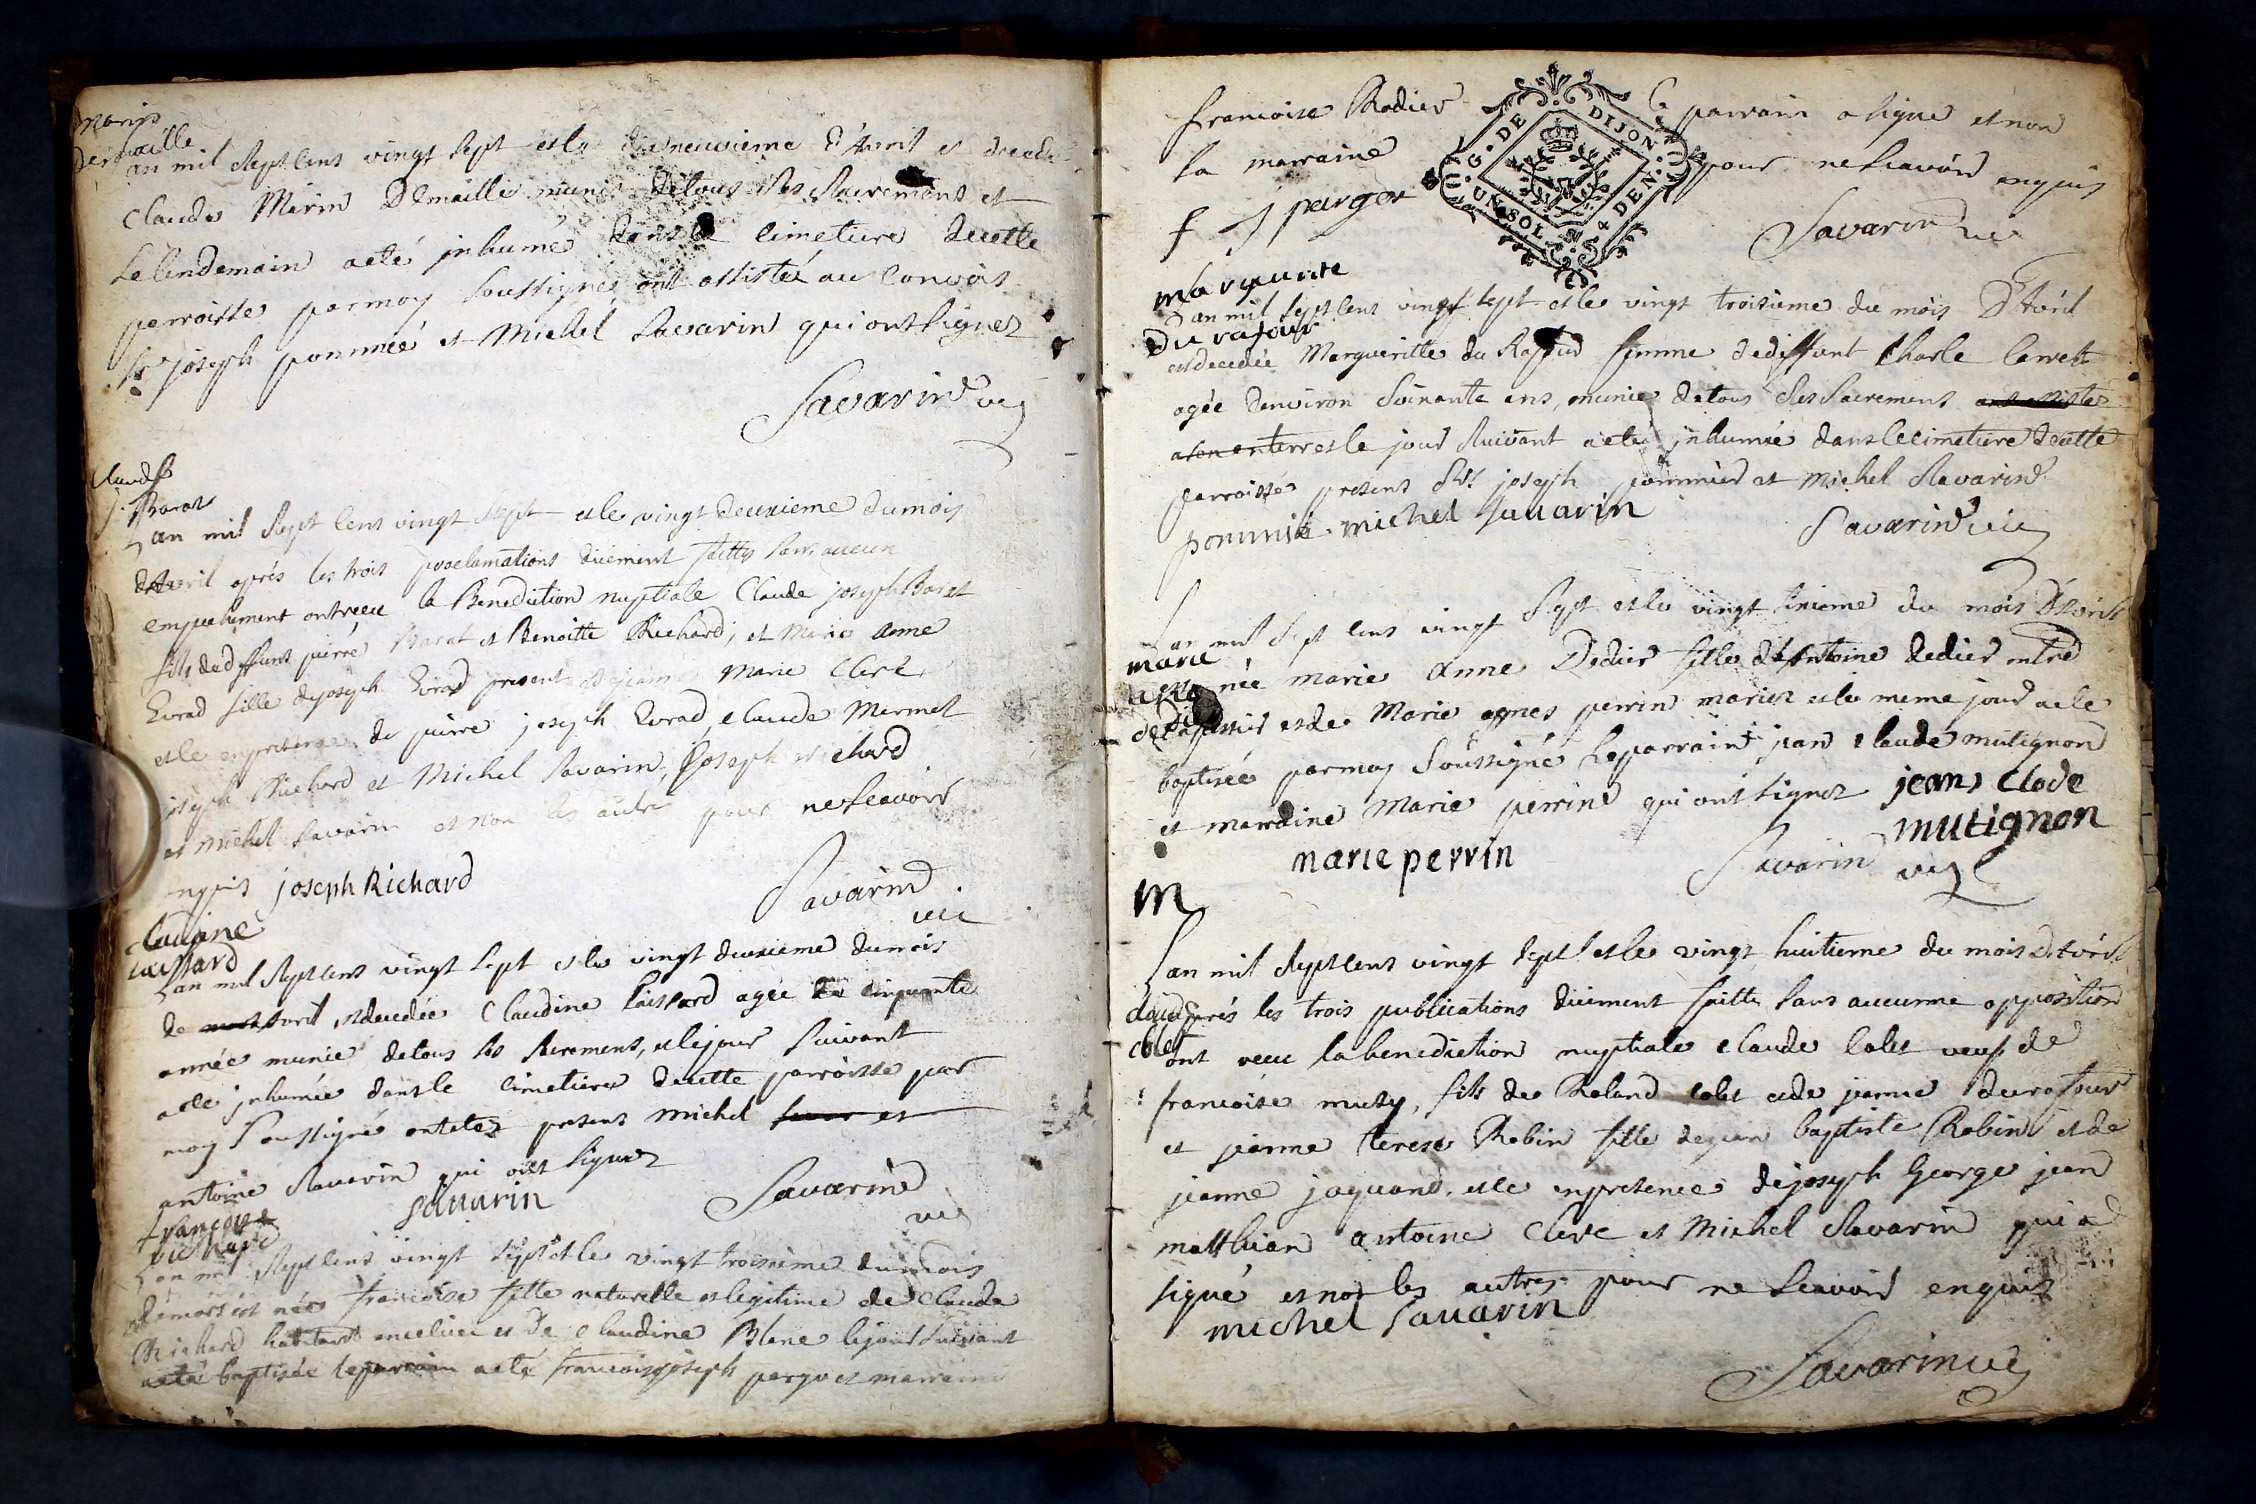 Marin
Demaille
an mil sept cens vingt sept et le dixneuvieme d'Avril est decede
Claude Marin Demaille munis de tous ses sacremens et
le lendemain a eté inhumé dans le cimetiere de cette
perroisse par moy soussigné ont assistés au convois
Sr joseph pommié et Michel Savarin qui ont signez
Savarin vic
Claude
j. Barat
Lan mil sept cens vingt sept et le vingt deuxieme du mois
d'Avril aprés les trois proclamations düement faittes sans aucun
empechement ont receu la Benediction nuptiale Claude joseph Barat
fils de deffunt pierre Barat et Benoitte Richard, et Marie Anne
Evrad fille de joseph Evrad presente et de jeanne Marie Clerc
et ce en presence de pierre joseph Evrad, Claude Mermet
joseph Richard et Michel Savarin, joseph richard
et Michel Savarin et non les autre pour ne scavoir
enquis joseph Richard
Savarin
vic
Claudine
caissard
Lan mil sept cens vingt sept et le vingt deuxieme du mois
de avril est decedée Claudine Caissard agée de cinquante
année munie de tous ses sacremens, et le jour suivant
a ete inhumée dans le cimetiere de cette parroisse par
moy soussigné ont etez presens Michel et
antoine Savarin qui ont signez
savarin
Savarin
vic
francoise
richard
Lan mil sept cens vingt sept et le vingt troisieme du mois
est née francoise fille naturelle et legitime de Claude
Richard habitant en celieu et de Claudine Blanc le jour suivant
a eté baptisée le parrain a eté francois joseph parget marraine
francoise Rodier le parrain a signe et non
la marraine pour ne scavoir enquis
f j parget
Savarin vic
G. DE DIJON
UN SOL 4 DEN.
Marguerite
Du rafour
Lan mil sept cens vingt sept et le vingt troisieme du mois D'Avril
est decedée Margueritte du Rafour femme de deffunt Charle
agée denviron soixante ans, munie de tous ses sacremens ont assistes
a son enterr et le jour suivant a eté inhumée dans le cimetiere de cette
parroisse presens Srs joseph pommier et Michel Savarin
pommié michel sauarin
Savarin vic
Lan mil sept cens vingt sept et le vingt sixieme du mois D'Avril
marie
est née marie Anne Dedier fille d'Antoine dedier
et de Marie agnes perrin mariez et le meme jour a ete
baptisée par moy soussigné le parrain jean claude mutignon
et marraine Marie perrin qui ont signez jeans Clode
mutignon
marie perrin
Savarin vic
m
Lan mil sept cens vingt sept et le vingt huitieme du mois D'Avril
claude
colet
aprés les trois publications düement faittes sans aucunne opposition
ont receu la benediction nuptiale Claude Colet veuf de
francoise muzy, fils de Roland colet et de jeanne durafour
et jeanne terese Robin fille de jean baptiste Robin et de
jeanne jaquand. et ce en presence de joseph George jean
matthian antoine Clerc et Michel Savarin qui a
signé et non les autres pour ne scavoir enquis
michel sauarin
Savarin vic